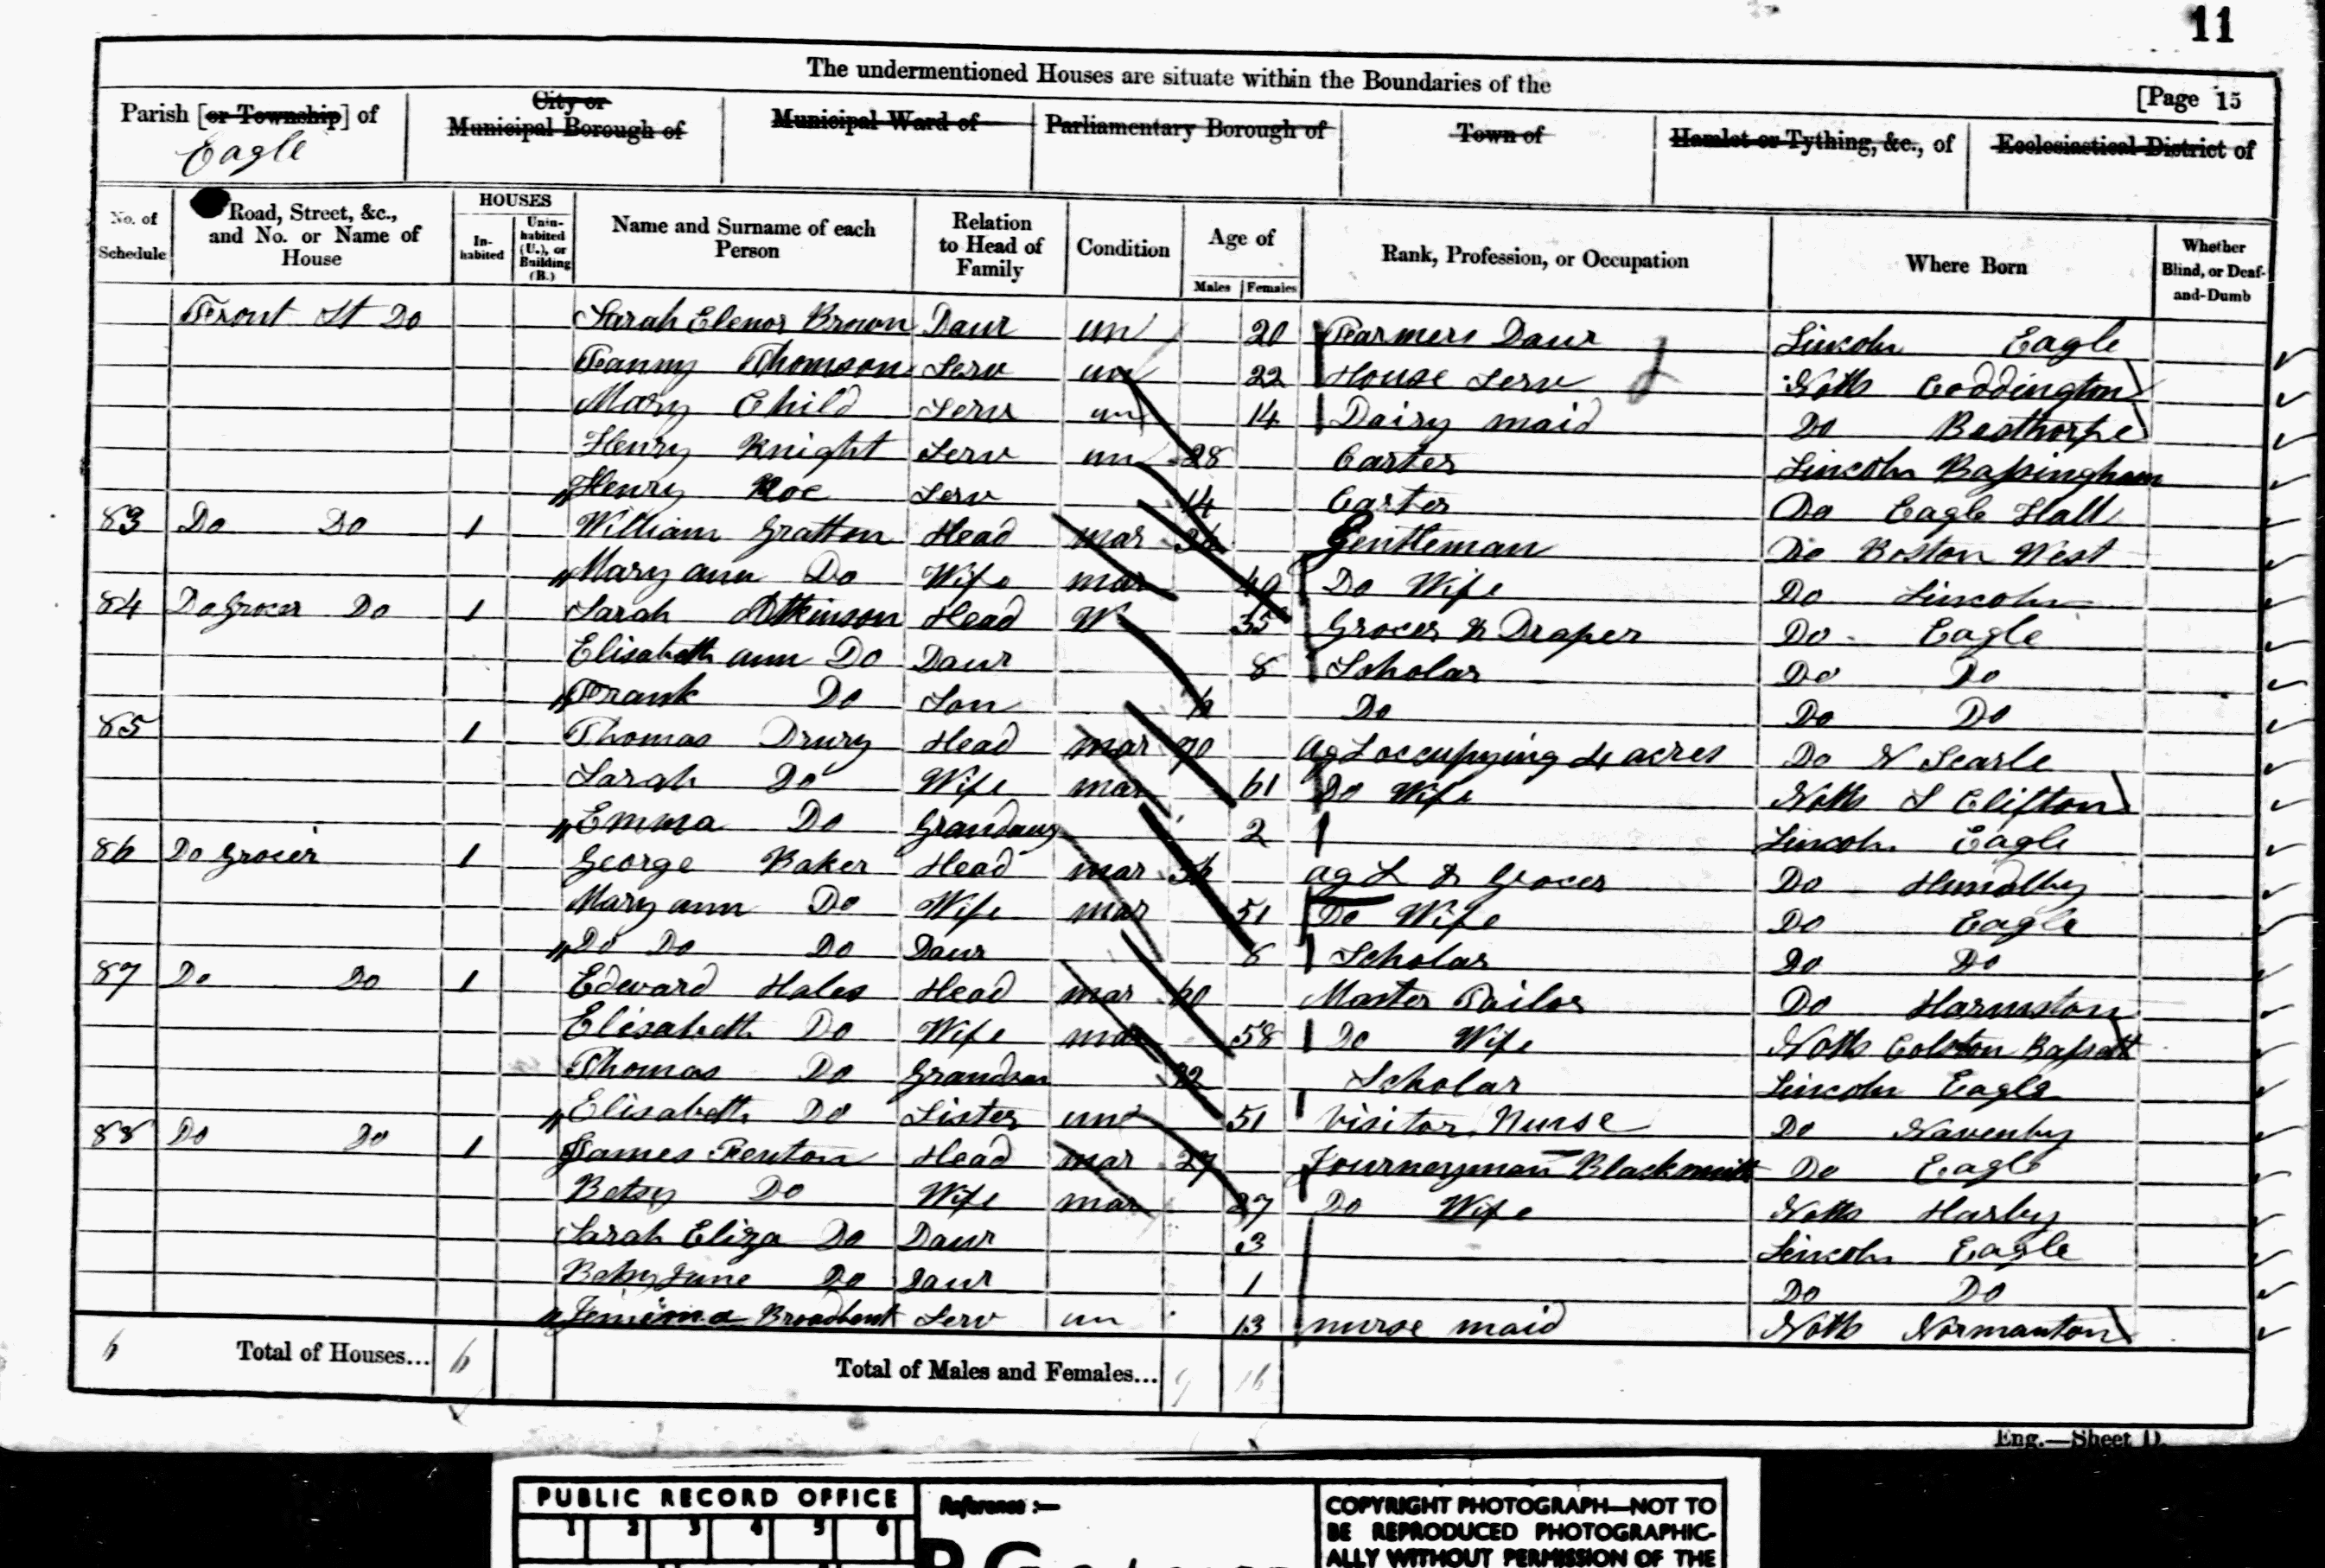 11
The undermentioned Houses are situate within the Boundaries of the
[Page 15
Parish [or Township] of City or Municipal Borough of Municipal Ward of Parliamentary Borough of Town of Hamlet or Tything, &c., of Ecclesiastical District of
Eagle
No. of Schedule Road, Street, &c., and No. or Name of House HOUSES Inhabited Uninhabited (U.), or Building (B.) Name and Surname of each Person Relation to Head of Family Condition Age of Males Females Rank, Profession, or Occupation Where Born Whether Blind, or Deaf-and-Dumb
Front St Do Sarah Elenor Brown Daur un 20 Farmers Daur Lincoln Eagle
Fanny Thomson Serv un 22 House Serv Notts Coddington
Mary Child Serv un 14 Dairy maid Do Besthorpe
Henry Knight Serv un 28 Carter Lincoln Bassingham
Henry Roe Serv 14 Carter Do Eagle Hall
83 Do Do 1 William Gratton Head mar Gentleman Do Boston West
Mary ann Do Wife mar 49 Do Wife Do Lincoln
84 Do Grocer Do 1 Sarah Atkinson Head W 35 Grocer & Draper Do Eagle
Elisabeth ann Do Daur 8 Scholar Do Do
Frank Do Son 6 Do Do Do
85 1 Thomas Drury Head mar 70 Ag L occupying 4 acres Do N Scarle
Sarah Do Wife mar 61 Do Wife Notts S Clifton
Emma Do Grandaug 2 Lincoln Eagle
86 Do Grocer 1 George Baker Head mar 56 Ag L & Grocer Do Hundlby
Mary ann Do Wife mar 51 Do Wife Do Eagle
Do Do Do Daur 8 Scholar Do Do
87 Do Do 1 Edward Hales Head mar 60 Master Tailor Do Harmston
Elisabeth Do Wife mar 58 Do Wife Notts Colston Bassett
Thomas Do Grandson 12 Scholar Lincoln Eagle
Elisabeth Do Sister un 51 Visitor Nurse Do Navenby
88 Do Do 1 James Fenton Head mar 27 Journeyman Blacksmith Do Eagle
Betsy Do Wife mar 27 Do Wife Notts Harby
Sarah Eliza Do Daur 3 Lincoln Eagle
Do Daur 1 Do Do
Jemima Broadbent Serv un 13 nurse maid Notts Normanton
6 Total of Houses... 6 Total of Males and Females... 9 16
Eng.—Sheet D.
PUBLIC RECORD OFFICE
1 2 3 4 5 6
Reference :—
COPYRIGHT PHOTOGRAPH—NOT TO
BE REPRODUCED PHOTOGRAPHIC-
ALLY WITHOUT PERMISSION OF THE